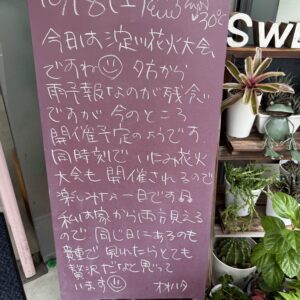 10/18(土)
30℃
今日は淀川花火大会
ですね☺ 夕方から
雨予報なのが残念
ですが 今のところ
開催予定のようです
同時刻で いたみ花火
大会も 開催されるので
楽しみな一日です
私は家から両方見える
ので 同じ日にあるのも
で 見れたらとても
贅沢だなと思って
います☺ オオハタ
SWE